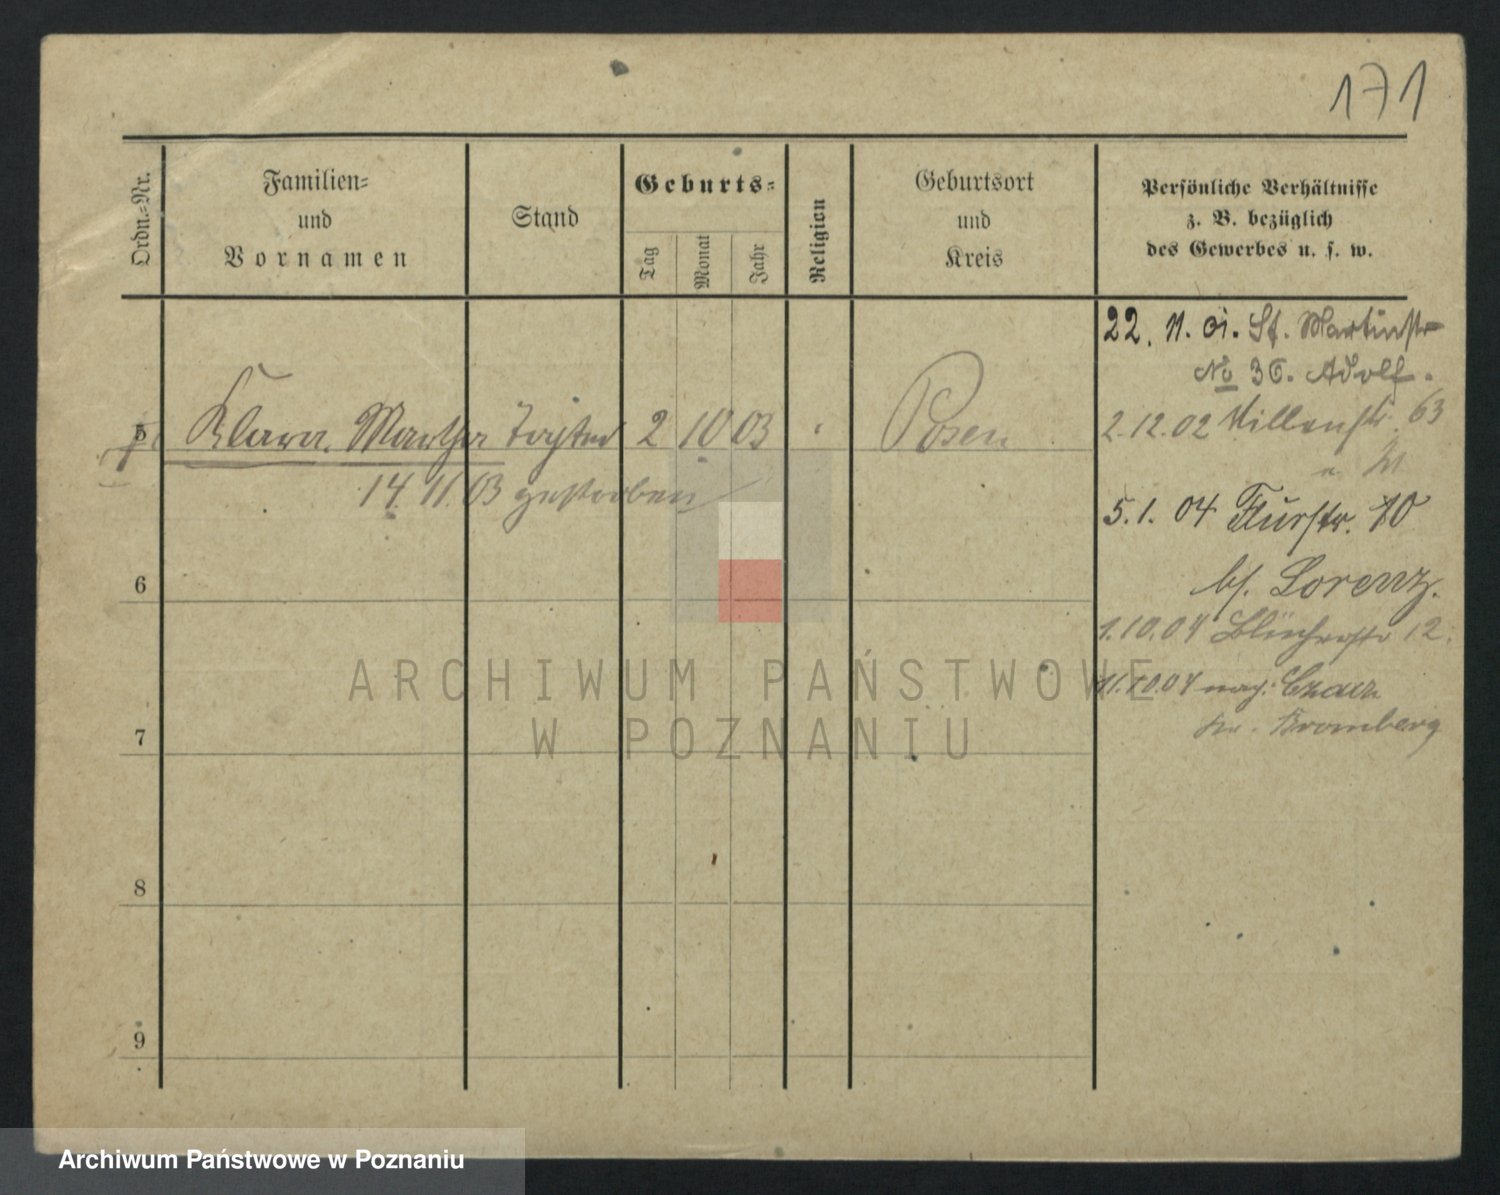 171
Ordn.-Nr.
Familien-
und
Vornamen
Stand
Geburts-
Tag
Monat
Jahr
Religion
Geburtsort
und
Kreis
Persönliche Verhältnisse
z. B. bezüglich
des Gewerbes u. s. w.
22. 11. 01. St. Martinstr
No 36. Adolf.
5 Klara Martha Tochter 2 10 03 Posen
2.12.02 Villenstr. 63
14. 11. 03 gestorben
5.1. 04 Flurstr. 10
bf. Lorenz.
6
1.10.04 Blücherstr 12.
11.10.04 nach
Kr. Bromberg
7
8
9
ARCHIWUM PAŃSTWOWE
W POZNANIU
Archiwum Państwowe w Poznaniu